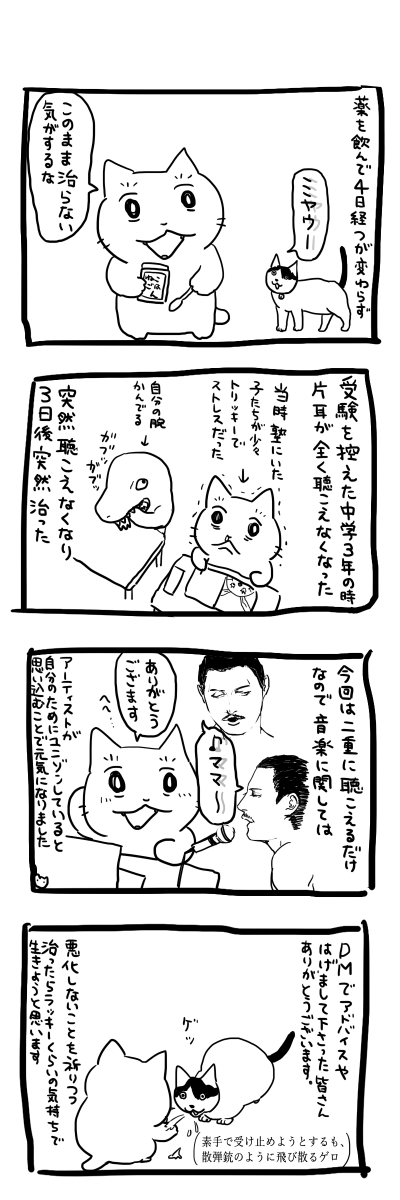 薬を飲んで4日経つが変わらず
ミャウー
このまま治らない
気がするな
ねこ
ごはん
受験を控えた中学3年の時
片耳が全く聴こえなくなった
当時塾にいた
子たちが少々
トリッキーで
ストレスだった
自分の腕
かんでる
ガブッ
ガブッ
突然聴こえなくなり
3日後突然治った
今回は二重に聴こえるだけ
なので音楽に関しては
♫ママ〜
ありがとう
ござます
へへ
アーティストが
自分のためにユニゾンしていると
思い込むことで元気になりました
DMでアドバイスや
はげまして下さった皆さん
ありがとうございます。
ゲッ
素手で受け止めようとするも、
散弾銃のように飛び散るゲロ
悪化しないことを祈りつつ
治ったらラッキーくらいの気持ちで
生きようと思います